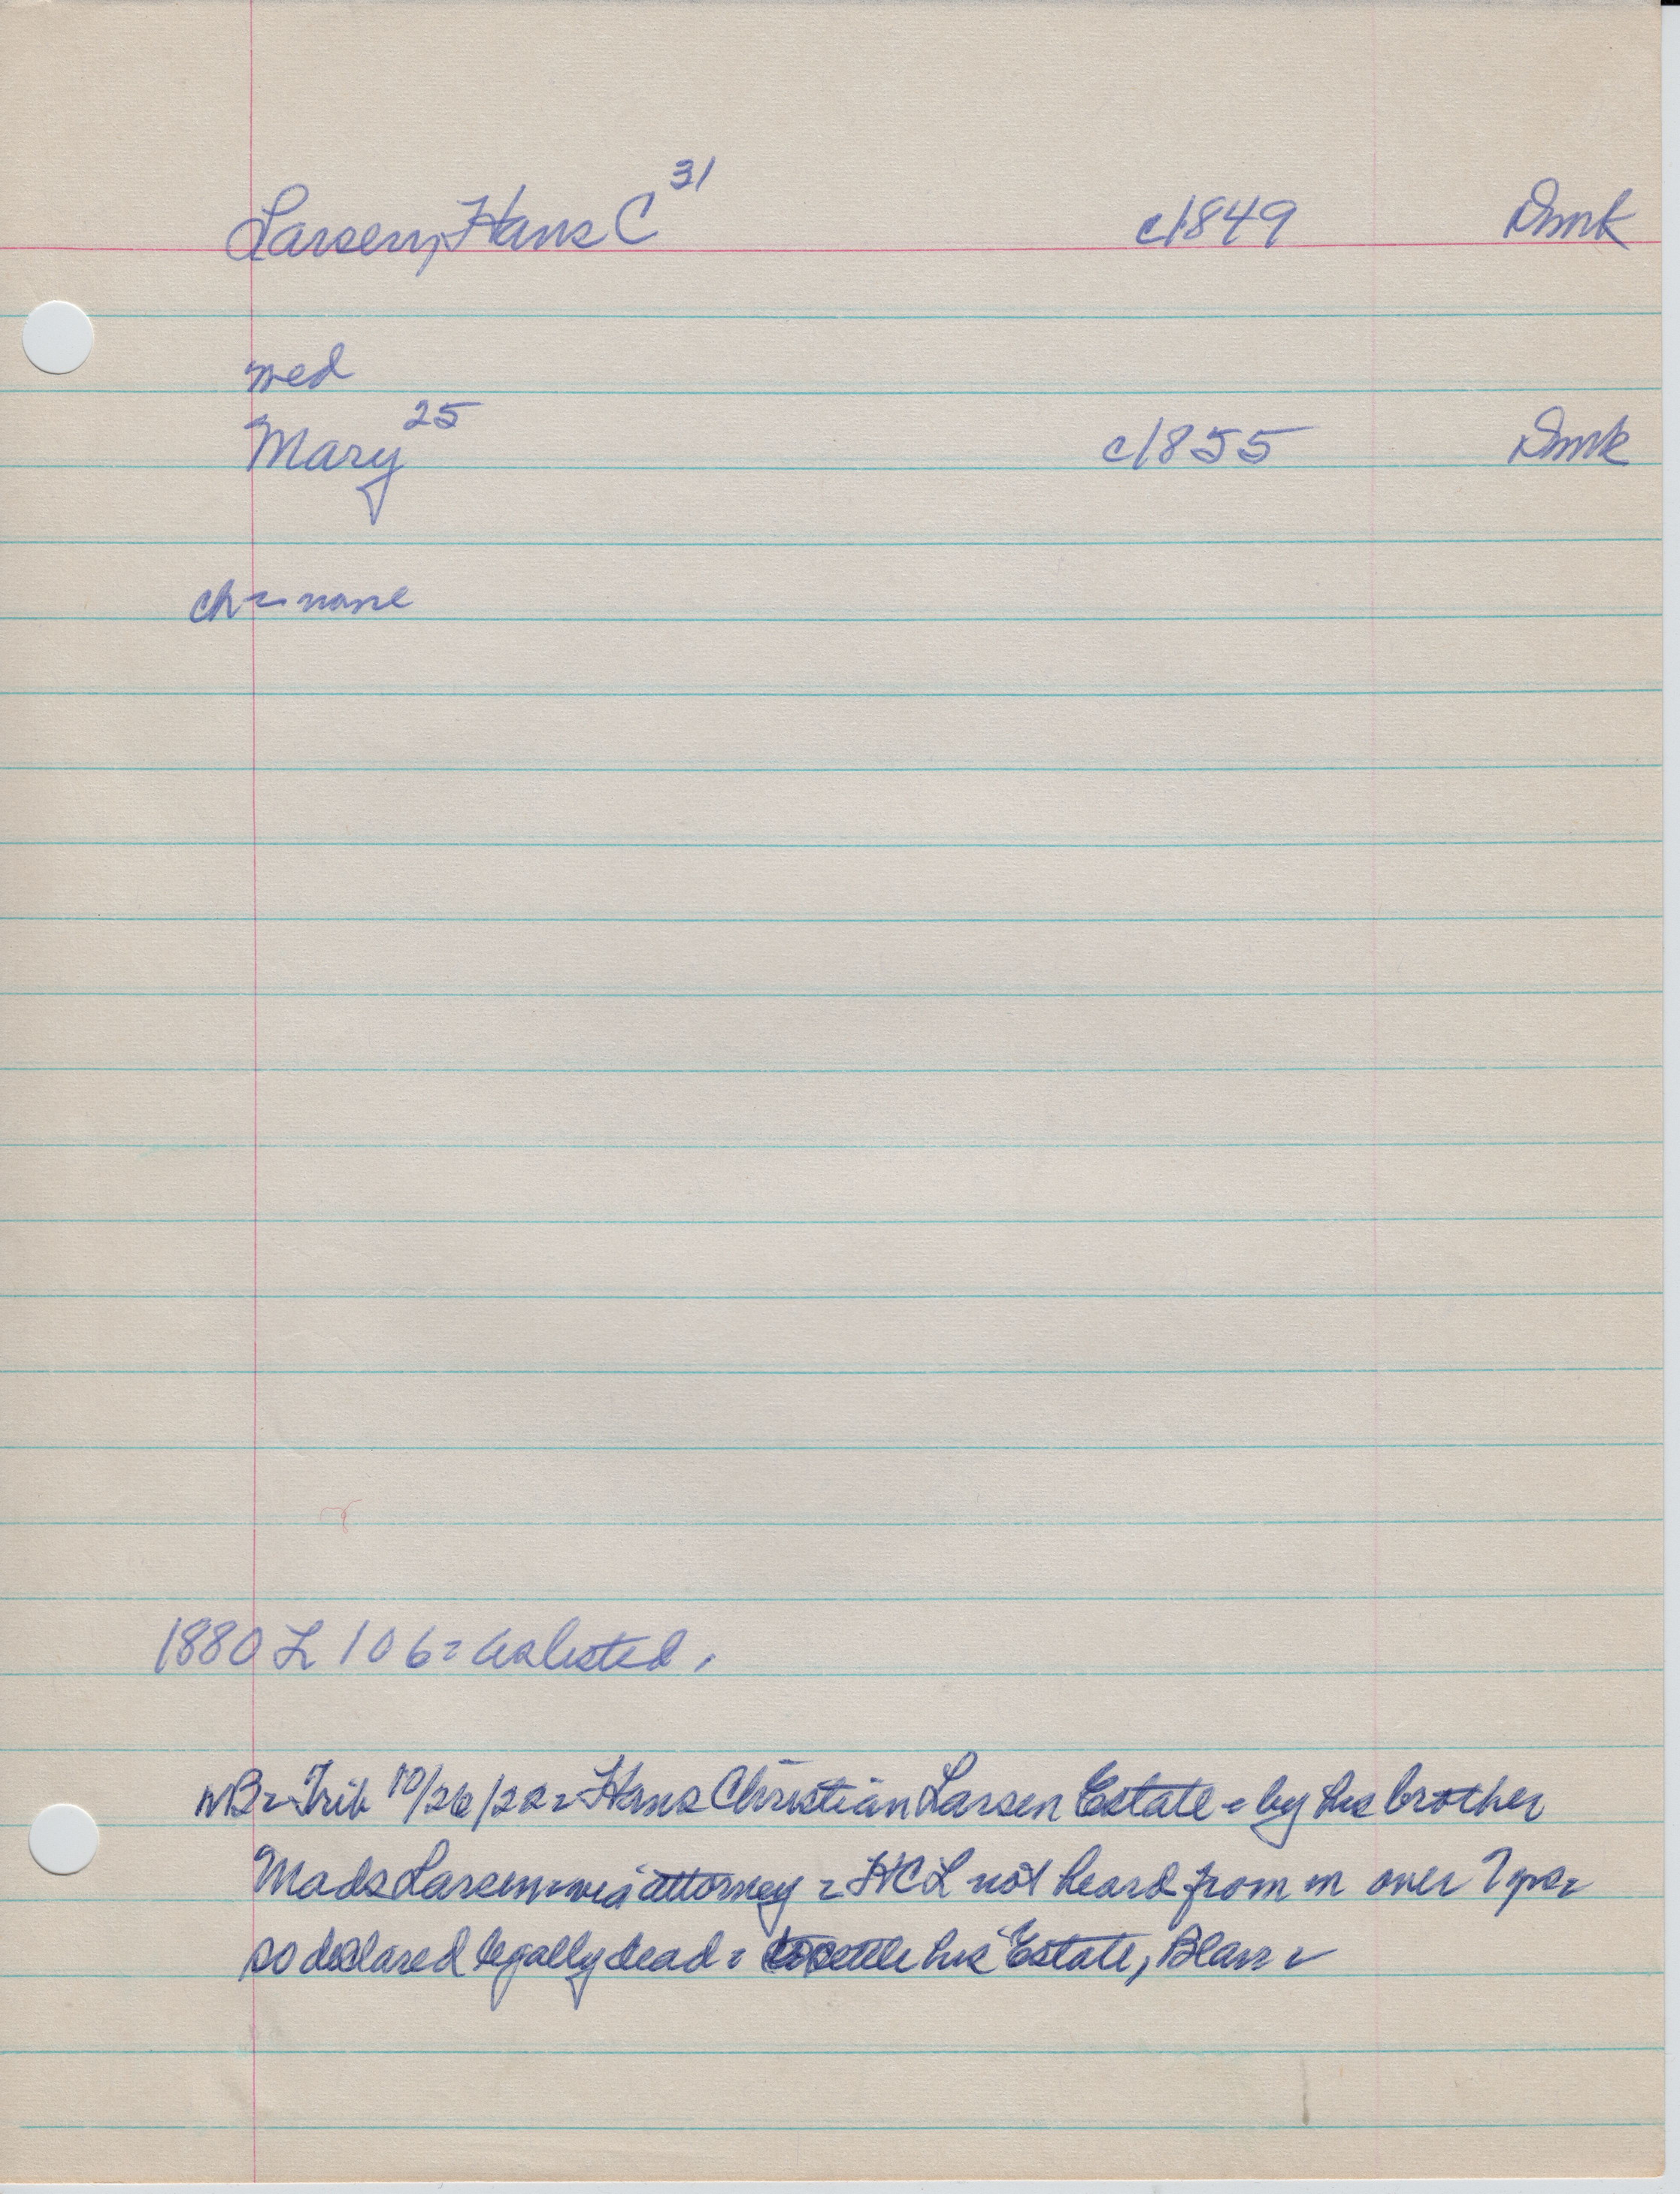 Larsen, Hans C 31 c1849 Dmk
med
Mary 25 c1855 Dmk
ch = none
1880 L 106 = as listed.
NB = Trib 10/26/22 = Hans Christian Larsen Estate = by his brother
Mads Larsen = via attorney = HCL not heard from in over 7 yrs =
so declared legally dead = to settle his Estate, Blair =